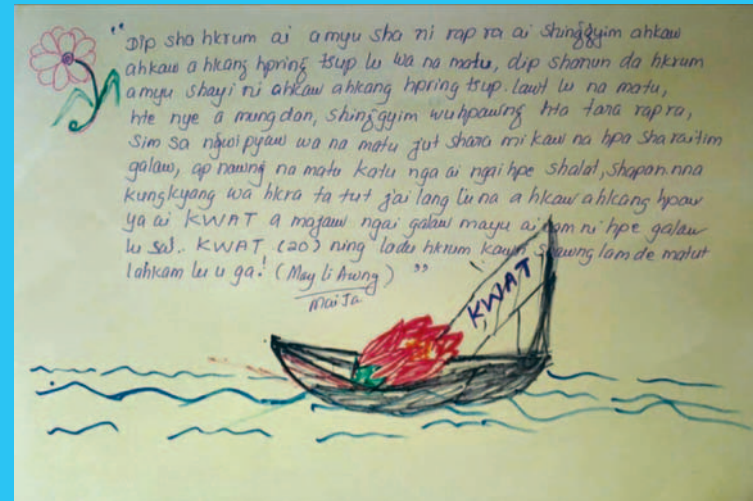 "Dip sha hkrum ai amyu sha ni rap ra ai shinggyim ahkaw
ahkaw ahkang hpring tsup lu wa na matu, dip shanun da hkrum
amyu shayi ni ahkaw ahkang hpring tsup lawt lu na matu,
hte nye a mungdan, shinggyim wuhpawng hta tara rap ra,
sim sa ngwi pyaw wa na matu jut shara mi kaw na hpa sha raitim
galaw, ap nawng na matu katu nga ai ngai hpe shalat, shapan nna
kungkyang wa hkra ta tut jai lang lu na ahkaw ahkang hpaw
ya ai KWAT a majaw ngai galaw mayu ai lam ni hpe galaw
lu sai. KWAT (20) ning ladu hkrum kawn shawng lam de matut
lahkam lu u ga! (May Li Awng) "
Mai Ja
KWAT